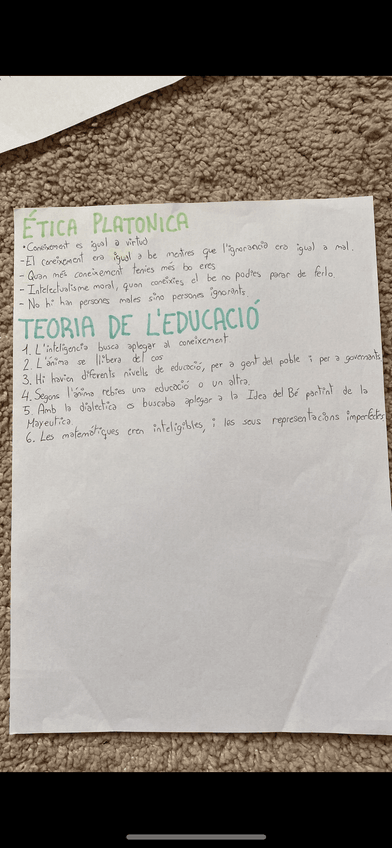 ÉTICA PLATONICA
• Coneixement es igual a virtud
- El coneixement era igual a be mentres que l'ignorancia era igual a mal.
- Quan més coneixement tenies més bo eres
- Intelectualisme moral, quan coneixies el be no podies parar de ferlo
- No hi han persones males sino persones ignorants
TEORIA DE L'EDUCACIÓ
1. L'inteligencia busca aplegar al coneixement
2. L'ánima se llibera del cos
3. Hi havien diferents nivells de educació, per a gent del poble i per a governants
4. Segons l'ánima rebies una educació o un altra.
5. Amb la dialectica es buscaba aplegar a la Idea del Bé partint de la
Mayeutica
6. Les matemàtiques eren inteligibles, i les seues representacions imperfectes